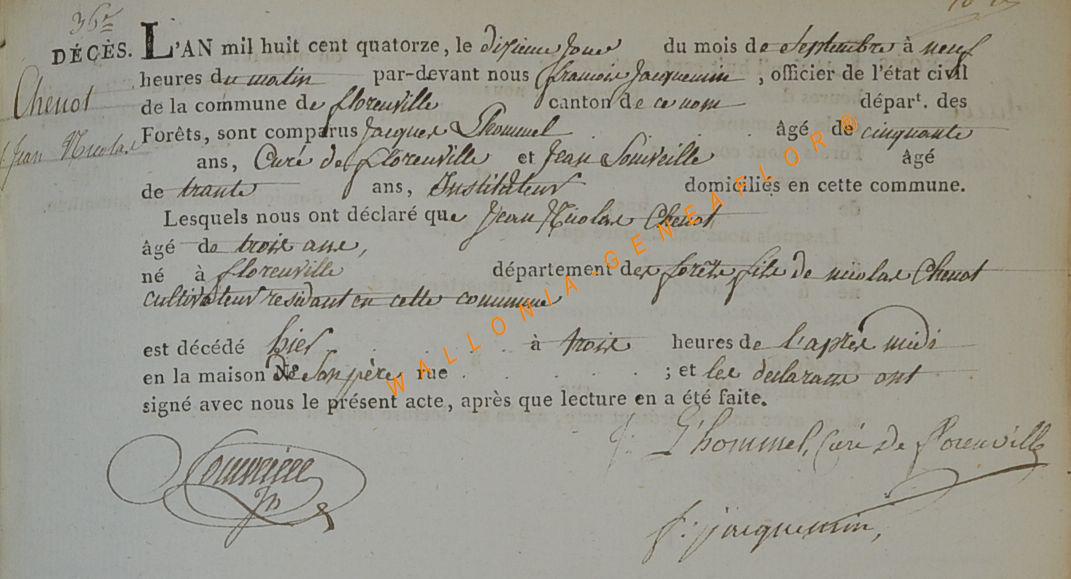 36e
DÉCÈS. L'AN mil huit cent quatorze, le dixieme Jour du mois de Septembre à neuf
Chenot
heures du matin par-devant nous francois Jacquemin, officier de l'état civil
de la commune de florenville canton de ce nom départ. des
Jean Nicolas
Forêts, sont comparus Jacques Lhommel âgé de cinquante
ans, Curé de florenville et Jean Souveille âgé
de trante ans, Instituteur domiciliés en cette commune.
Lesquels nous ont déclaré que Jean Nicolas Chenot
âgé de trois ans,
né à florenville département des forêts fils de nicolas Chenot
cultivateur residant en cette commune
est décédé hier à trois heures de l'après midi
en la maison de Son père rue ; et les declarans ont
signé avec nous le présent acte, après que lecture en a été faite.
J: L'hommel, Curé de florenville
f: jacquemin,
WALLONIA-GENEAFLOR®